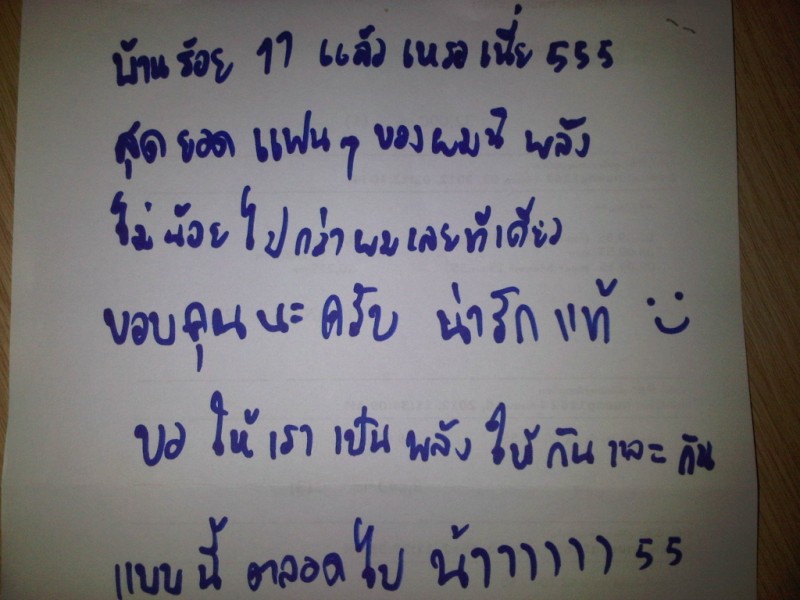 บ้านร้อย 11 แล้วเหรอเนี่ย 555
สุดยอด แฟนๆ ของผมนี่ พลัง
ไม่น้อยไปกว่าผมเลยทีเดียว
ขอบคุณนะครับ น่ารักแท้ :)
ขอให้เราเป็นพลังให้กันและกัน
แบบนี้ตลอดไป น้าาาาาาา 55